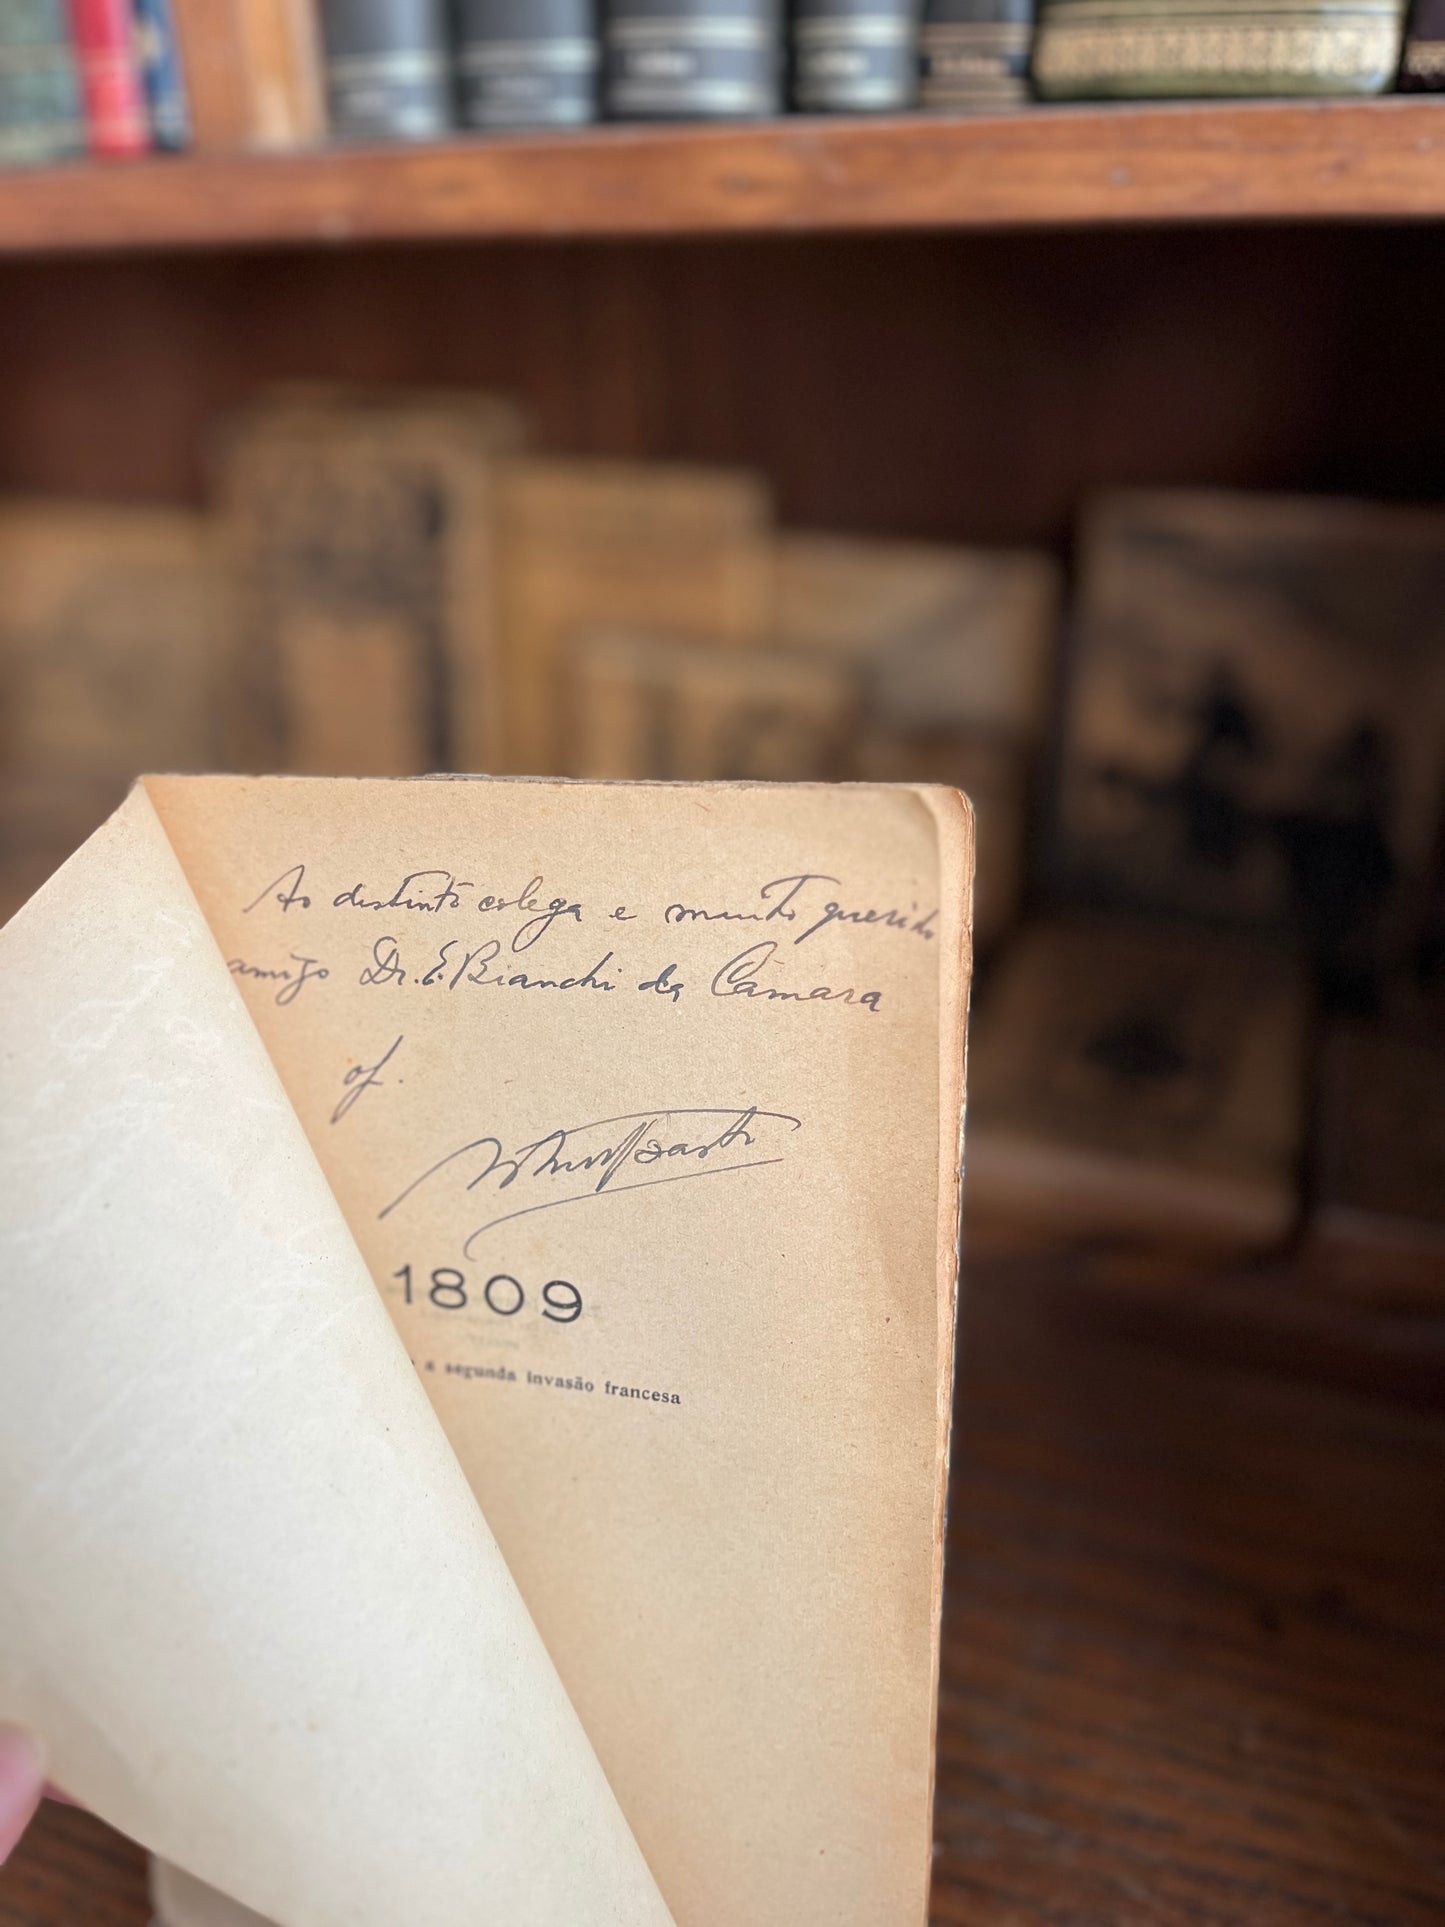 Ao distinto colega e muito querido
amigo Dr. E. Bianchi da Câmara
of.
1809
a segunda invasão francesa